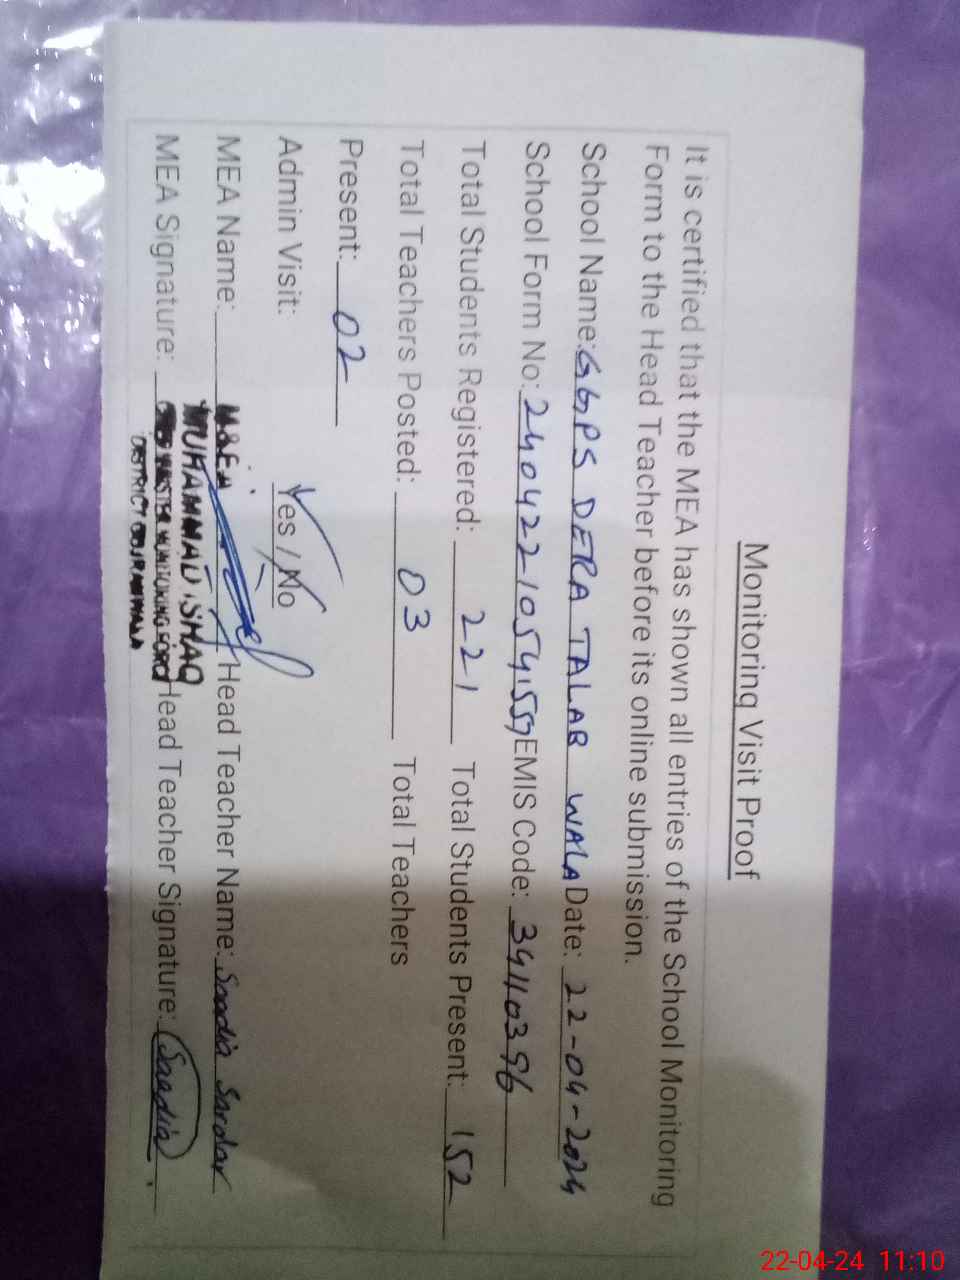 Monitoring Visit Proof
It is certified that the MEA has shown all entries of the School Monitoring
Form to the Head Teacher before its online submission.
School Name: GGPS DERA TALAB WALA Date: 22-04-2024
School Form No: EMIS Code: 34110396
Total Students Registered: 221 Total Students Present: 152
Total Teachers Posted: 03 Total Teachers
Present: 02
Admin Visit: Yes / No
MEA Name: M&EA Head Teacher Name: Saadia Sardar
MUHAMMAD ISHAQ
MEA Signature: MONITORING FORCE Head Teacher Signature: Saadia
DISTRICT GUJRANWALA
22-04-24 11:10